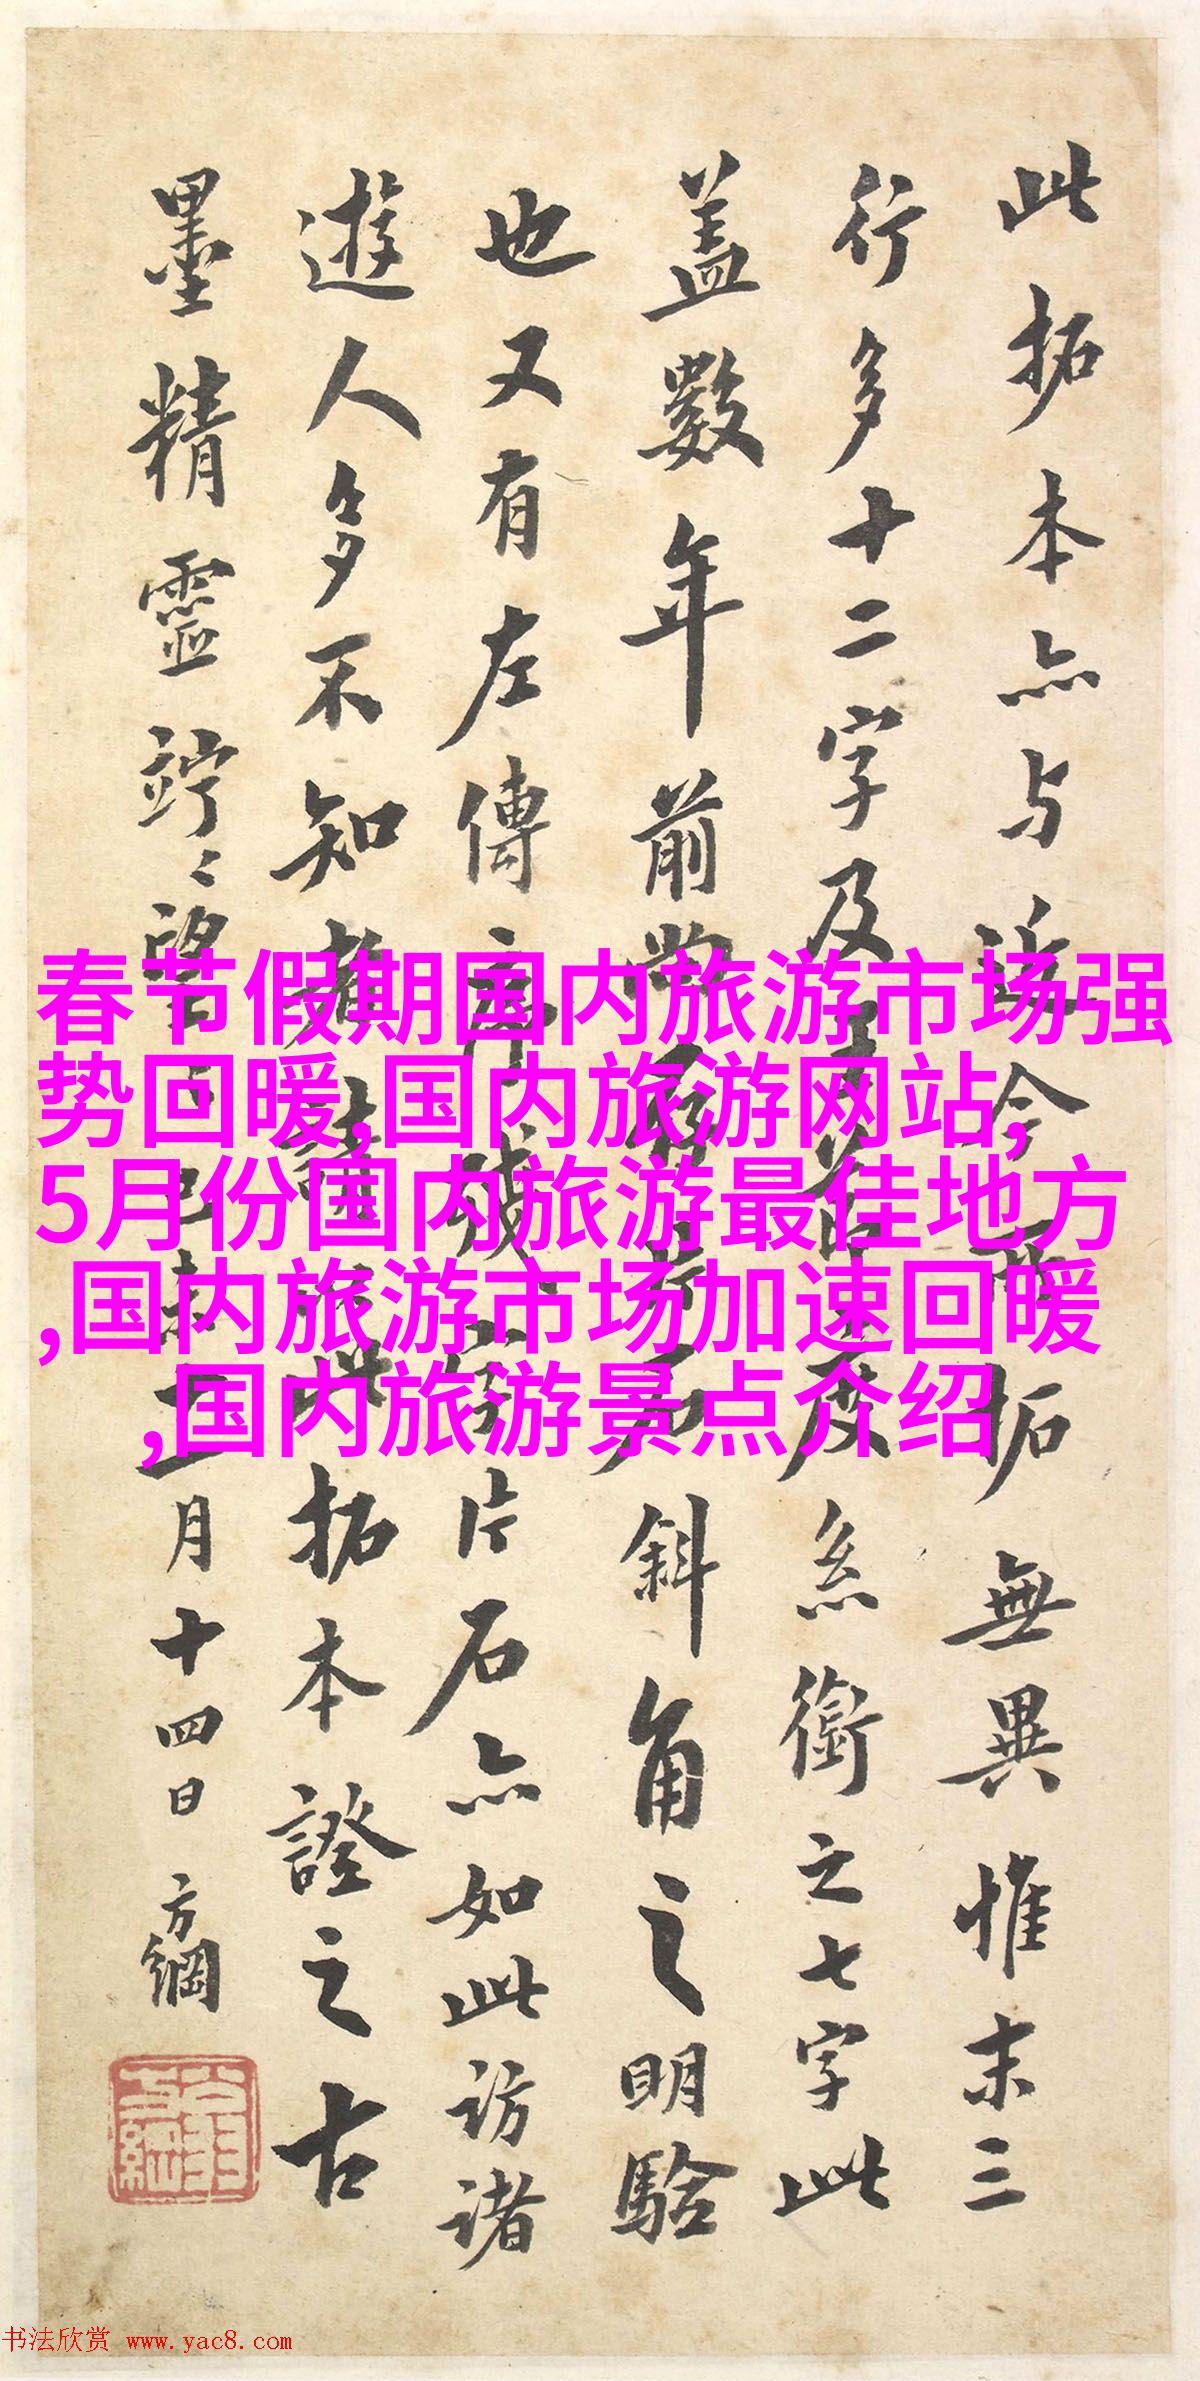 此拓本亦与近今所拓無異惟末三
行多十二字及
糸銜之七字此
蓋數年前
斜角之明驗
也又有左傳序殘
片石亦如此訪諸
遊人多不知者
拓本證之古
墨精靈竚〻望
月十四日方綱
春节假期国内旅游市场强
势回暖,国内旅游网站,
5月份国内旅游最佳地方
,国内旅游市场加速回暖
,国内旅游景点介绍
书法欣赏 www.yac8.com